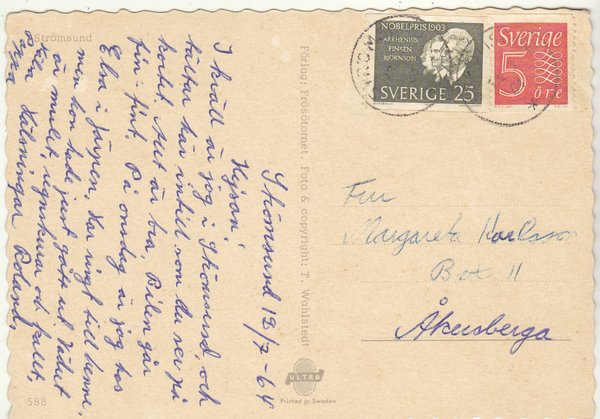 Strömsund
Strömsund 13/7-64
Hejsan!
I kväll är jag i Strömsund och
tältar här intill som du ser på
kortet. Allt är bra. Bilen går
fint fint. På onsdag är jag hos
Elsa i Järpen. Har ringt till henne
men hon hade just gått ut. Vädret
är mulet, regnskurar och kallt.
Hälsningar Roland.
Förlag: Frösötornet. Foto & copyright: T. Wahlstedt
588
ULTRA
Printed in Sweden
NOBELPRIS 1903
ARRHENIUS
FINSEN
BJØRNSON
SVERIGE 25
Sverige
5
öre
Fru
Margareta Karlsson
Box 11
Åkersberga